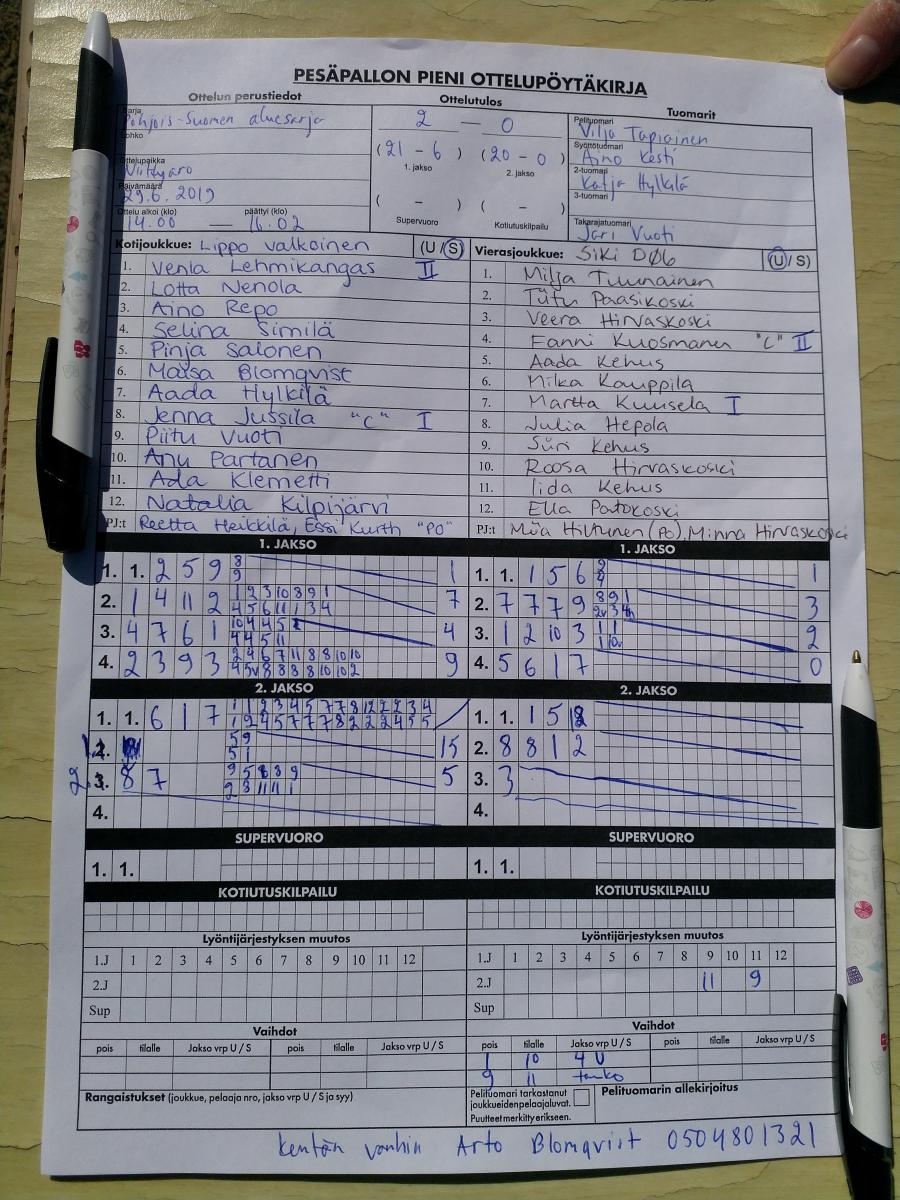 PESÄPALLON PIENI OTTELUPÖYTÄKIRJA
Ottelun perustiedot
Sarja
Pohjois-Suomen aluesarja
Lohko
Ottelupaikka
Päivämäärä
29.6.2019
Ottelu alkoi (klo) päättyi (klo)
14.00 — 16.02
Ottelutulos
2 — 0
(21 - 6) (20 - 0)
1. jakso 2. jakso
( - ) ( - )
Supervuoro Kotiutuskilpailu
Tuomarit
Pelituomari
Vilja Tapiainen
Syöttötuomari
Aino Kesti
2-tuomari
Katja Hylkilä
3-tuomari
Takarajatuomari
Jari Vuoti
Kotijoukkue: Lippo valkoinen (U / S)
1. Venla Lehmikangas II
2. Lotta Nenola
3. Aino Repo
4. Selina Similä
5. Pinja Salonen
6. Maisa Blomqvist
7. Aada Hylkilä
8. Jenna Jussila "C" I
9. Piitu Vuoti
10. Anu Partanen
11. Ada Klemetti
12. Natalia Kilpijärvi
PJ:t Reetta Heikkilä, Essi Kurth "PO"
Vierasjoukkue: SiKi D06 (U / S)
1. Milja Tuunainen
2. Tutu Paasikoski
3. Veera Hirvaskoski
4. Fanni Kuosmanen "C" II
5. Aada Kehus
6. Milka Kauppila
7. Martta Kuusela I
8. Julia Hepola
9. Siiri Kehus
10. Roosa Hirvaskoski
11. Iida Kehus
12. Ella Patokoski
PJ:t Miia Hiltunen (PO), Minna Hirvaskoski
1. JAKSO
1. 1. 2 5 9 8 1
9
2. 1 4 11 2 1 2 3 10 8 9 1 7
4 5 6 11 1 3 4
3. 4 7 6 1 4
4 4 5 11
4. 2 3 9 3 2 4 6 7 11 8 8 10 10 9
1. JAKSO
1. 1. 1 5 6 1
2. 7 7 7 9 8 9 1 3
3. 1 2 10 3 1 1 2
4. 5 6 1 7 0
2. JAKSO
1. 1. 6 1 7
5 9 15
5 1
2. 8 7 5
4.
2. JAKSO
1. 1. 1 5
2. 8 8 1 2
3. 3
4.
SUPERVUORO
1. 1.
SUPERVUORO
1. 1.
KOTIUTUSKILPAILU
KOTIUTUSKILPAILU
Lyöntijärjestyksen muutos
1.J 1 2 3 4 5 6 7 8 9 10 11 12
2.J
Sup
Lyöntijärjestyksen muutos
1.J 1 2 3 4 5 6 7 8 9 10 11 12
2.J 11 9
Sup
Vaihdot
pois tilalle Jakso vrp U / S pois tilalle Jakso vrp U / S
Vaihdot
pois tilalle Jakso vrp U / S pois tilalle Jakso vrp U / S
1 10 4 U
9 11 tauko
Rangaistukset (joukkue, pelaaja nro, jakso vrp U / S ja syy)
Pelituomari tarkastanut
joukkueiden pelaajaluvat.
Puutteet merkitty erikseen.
Pelituomarin allekirjoitus
Kentän vanhin Arto Blomqvist 0504801321